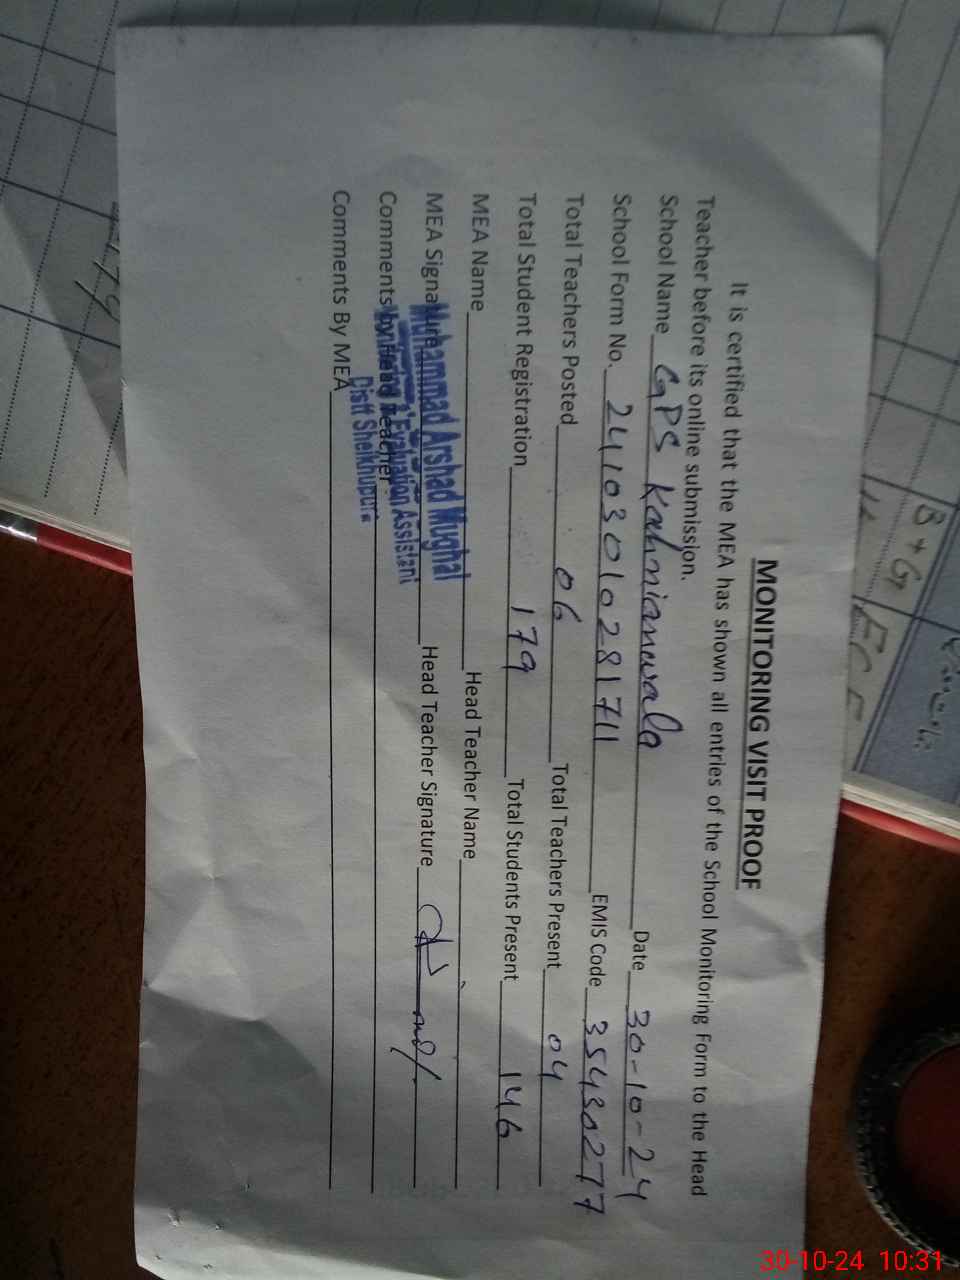 MONITORING VISIT PROOF
It is certified that the MEA has shown all entries of the School Monitoring Form to the Head
Teacher before its online submission.
School Name GPS Kahnianwala Date 30-10-24
School Form No. 24103010281711 EMIS Code 35430277
Total Teachers Posted 06 Total Teachers Present 04
Total Student Registration 179 Total Students Present 146
MEA Name Head Teacher Name
MEA Signature Head Teacher Signature
Muhammad Arshad Mughal
Comments by Head Teacher
Evaluation Assistant
Distt Sheikhupura
Comments By MEA
B+G
ECE
179
30-10-24 10:31